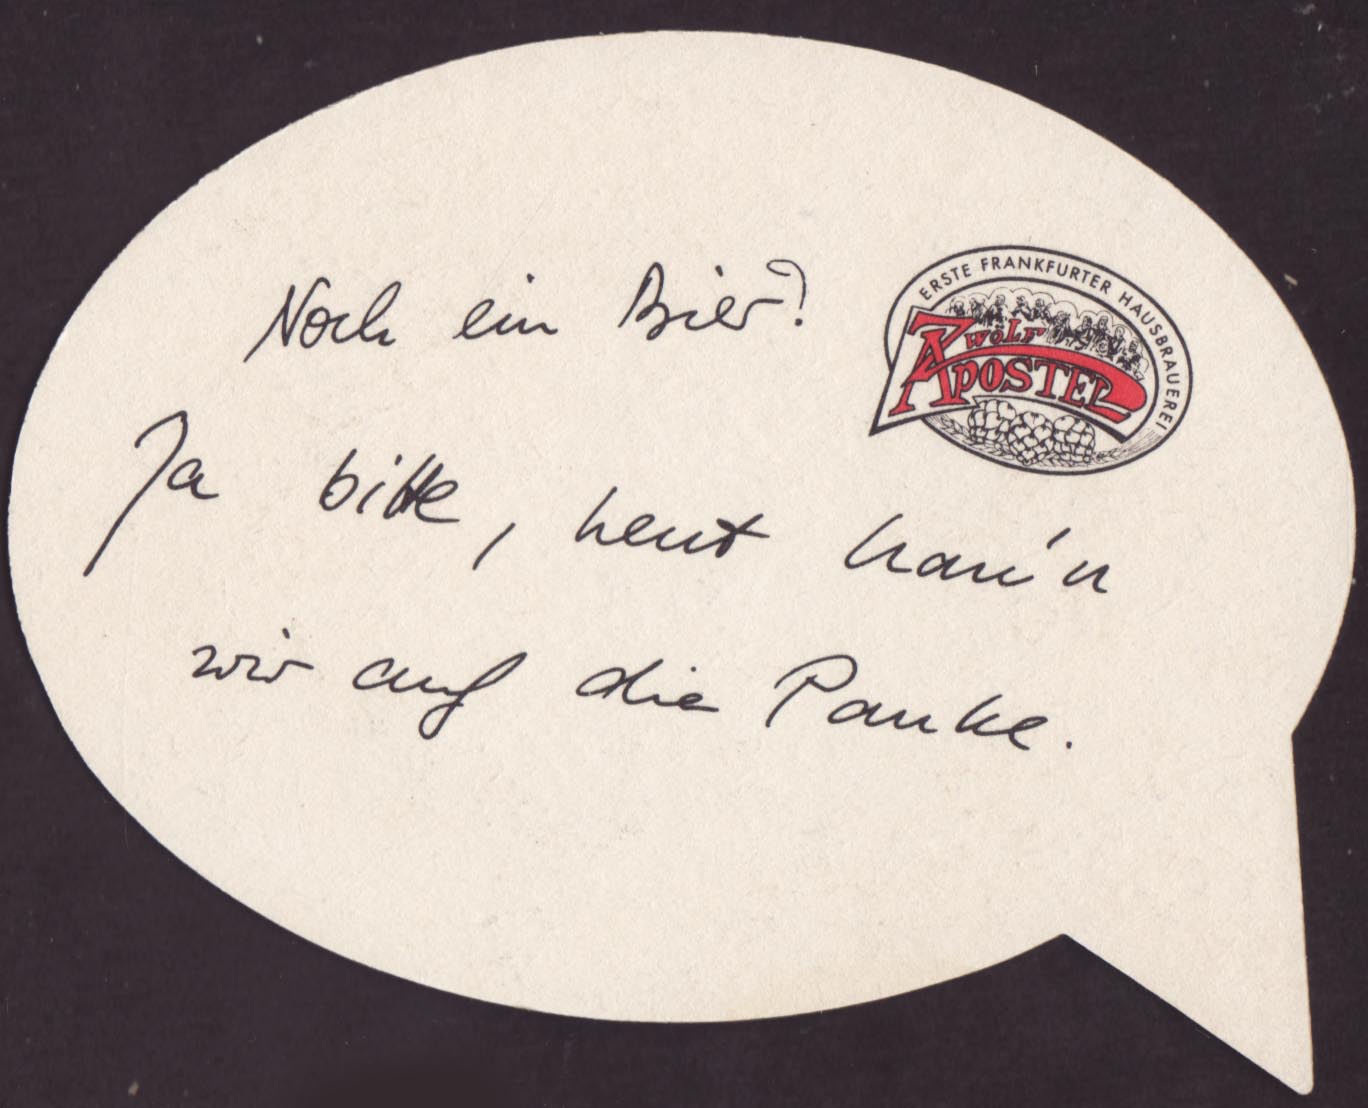 Noch ein Bier?
ERSTE FRANKFURTER HAUSBRAUEREI
ZWÖLF
APOSTEL
Ja bitte, heut hau'n
wir auf die Pauke.